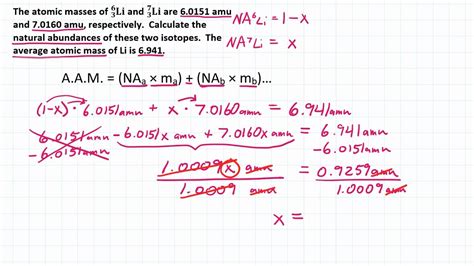 The atomic masses of ⁶₃Li and ⁷₃Li are 6.0151 amu
and 7.0160 amu, respectively. Calculate the
natural abundances of these two isotopes. The
average atomic mass of Li is 6.941.
NA⁶Li = 1-x
NA⁷Li = x
A.A.M. = (NAₐ × mₐ) ± (NA_b × m_b)...
(1-x)·6.0151amu + x·7.0160amu = 6.941amu
6.0151amu - 6.0151x amu + 7.0160x amu = 6.941amu
-6.0151amu -6.0151amu
1.0009 x amu = 0.9259 amu
1.0009 amu 1.0009 amu
x =